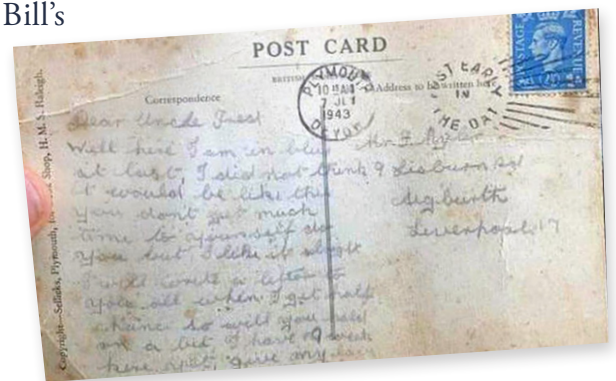 Bill's
POST CARD
Correspondence
Address to be written here
PLYMOUTH
10 30 AM
1943
DEVON
POST EARLY
IN
THE DAY
POSTAGE
REVENUE
Copyright—Sellicks, Plymouth, Shop, H. M. S. Raleigh.
Dear Uncle Fred
Well here I am in blue
at last, I did not think
it would be like this
you don't get much
time to yourself do
you but I like it alright
I will write a letter to
you all when I get half
chance so will you
on a bit I have 9 week
here yet, give my
9 Lisburn Rd
Aigburth
Liverpool 17